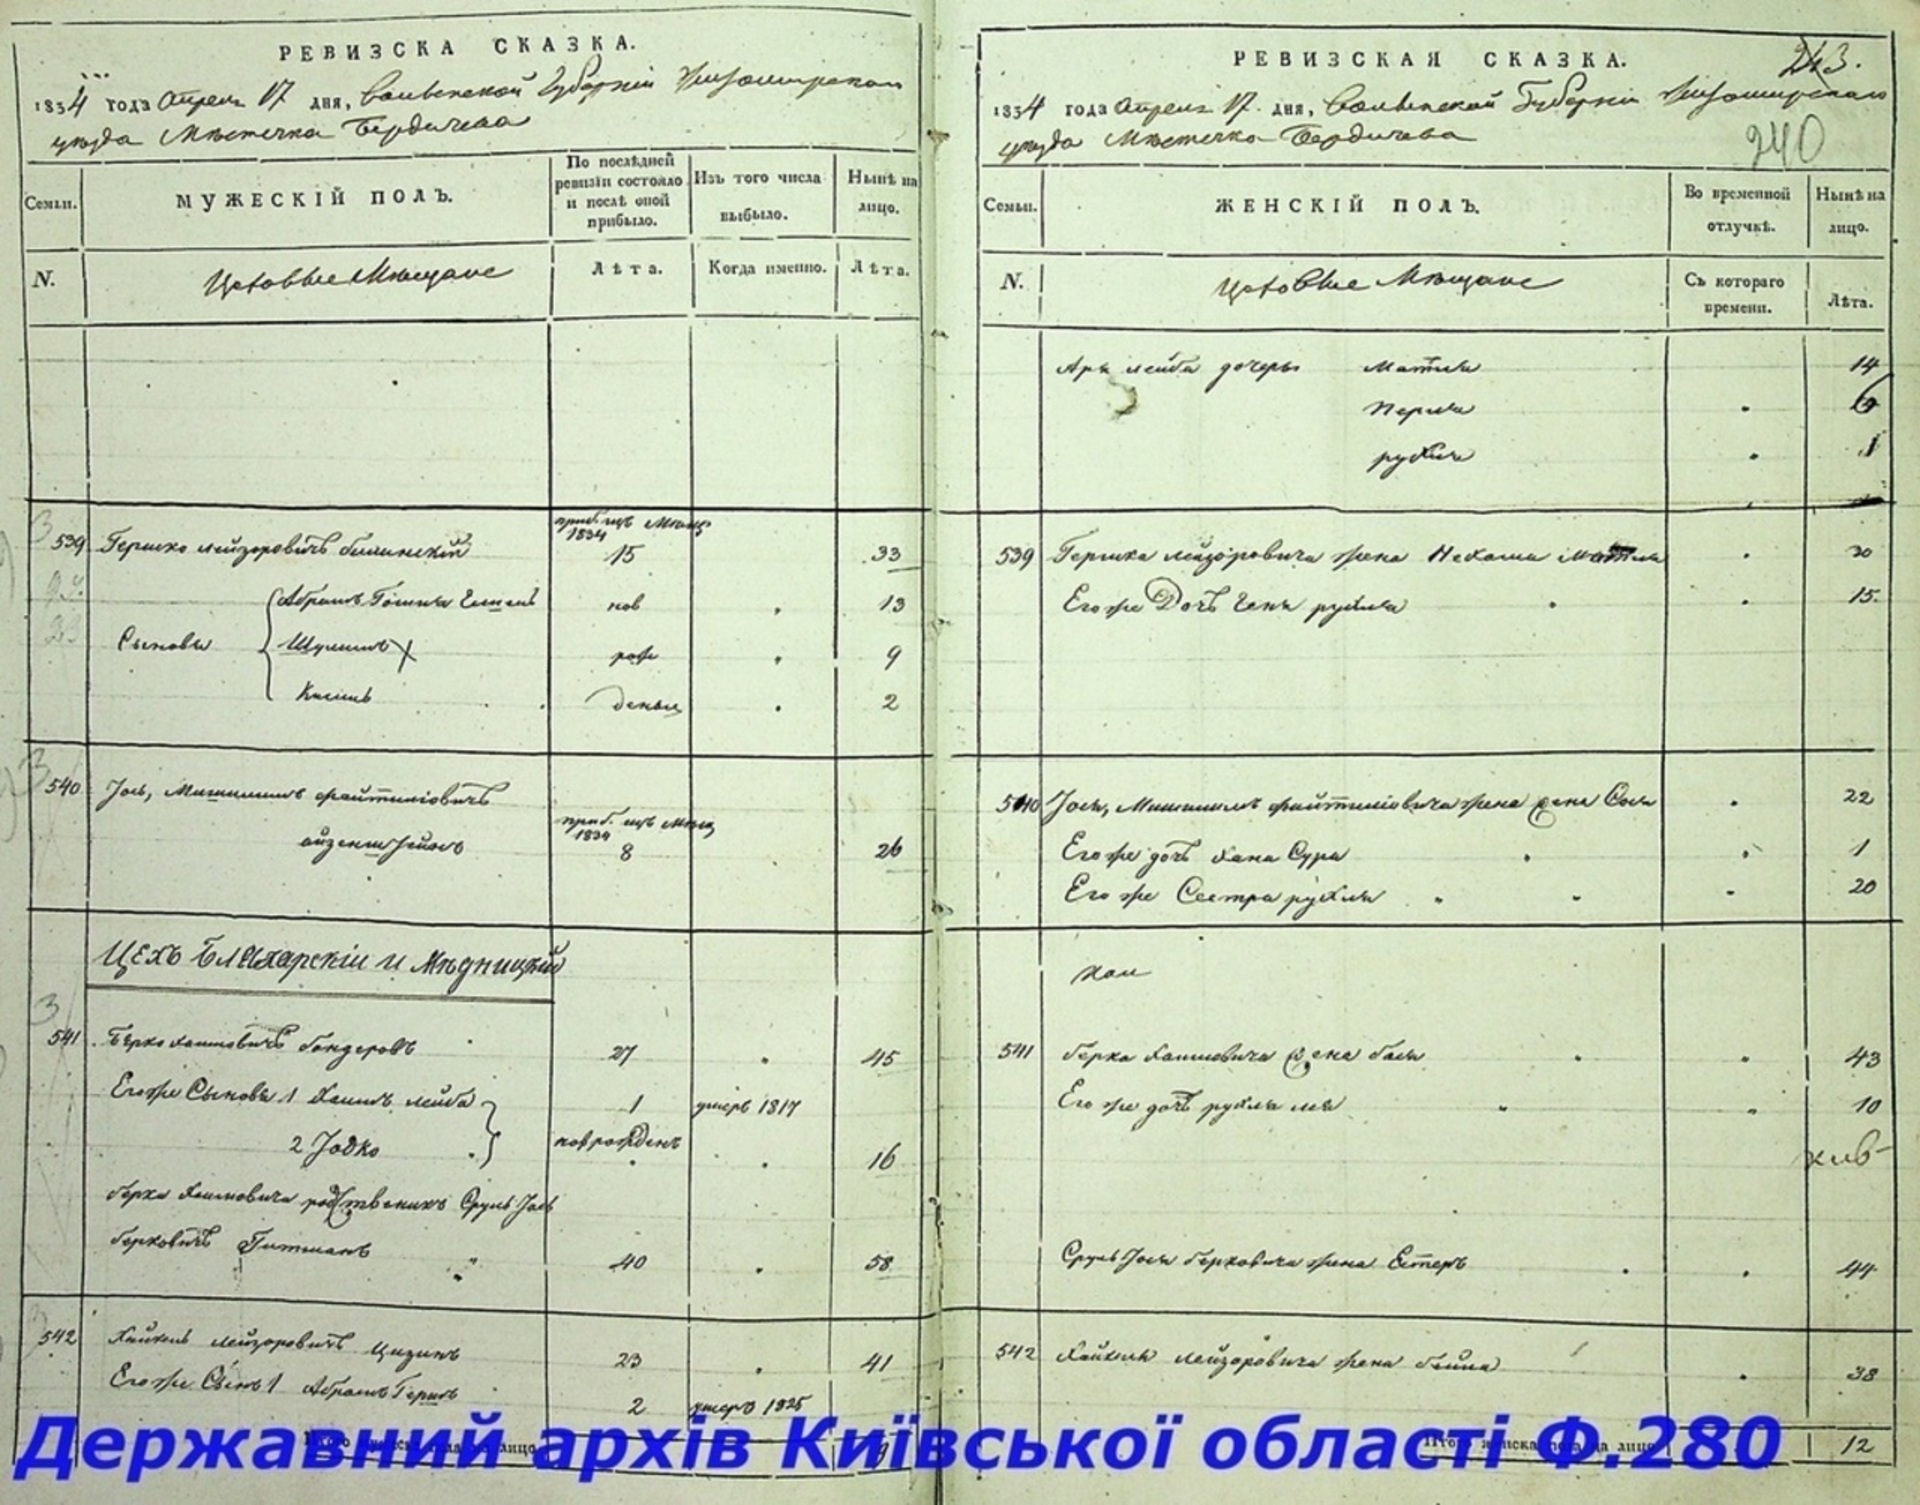 РЕВИЗСКА СКАЗКА.
1834 года Апреля 17 дня, Волынской Губернии Житомирскаго
уезда Местечка Бердичева
Семьи.
МУЖЕСКІЙ ПОЛЪ.
По послѣдней ревизіи состояло и послѣ оной прибыло.
Изъ того числа выбыло.
Нынѣ на лицо.
N.
Цеховые Мещане
Лѣта.
Когда именно.
Лѣта.
539 Гершко Лейзоровичъ приб. изъ Мещ. 1834 15 33
Абрамъ нов 13
Сыновья Шулимъ рож 9
дены 2
540 Іось, Мишилимъ Файтиліовичъ
приб. изъ Мещ. 1834 8 26
Цехъ Бляхарскій и Мѣдницкій
541 Берко Хаимовичъ Бондеровъ 27 45
Его же Сыновья 1 Хаимъ Лейба 1 умеръ 1817
2 Іодко новрожденъ 16
Берка Хаимовича родственикъ Сруль Іось
Берковичъ Гитманъ 40 58
542 Хайкель Лейзоровичъ Цизинъ 23 41
Его же Сынъ 1 Абрамъ Гершъ 2 умеръ 1825
РЕВИЗСКАЯ СКАЗКА.
243.
1834 года Апреля 17 дня, Волынской Губерніи Житомирскаго
240
уезда Местечка Бердичева
Семьи.
ЖЕНСКІЙ ПОЛЪ.
Во временной отлучкѣ.
Нынѣ на лицо.
N.
Цеховые Мещане
Съ котораго времени.
Лѣта.
Аря Лейба дочеры Матля 14
Перля 6
Рухля 1
539 Гершка Лейзоровича жена Нехама 30
Его же Дочь Рухля 15.
540 Іося, Мишилимъ Файтиліовича жена 22
Его же дочь Хана Сура 1
Его же Сестра Рухля 20
541 Берка Хаимовича жена Бася 43
Его же дочь Рухля Лея 10
Сруль Іося Берковича жена Естеръ 44
542 Хайкеля Лейзоровича жена Бейла 38
Итого женска пола на лицо 12
Державний архів Київської області Ф.280